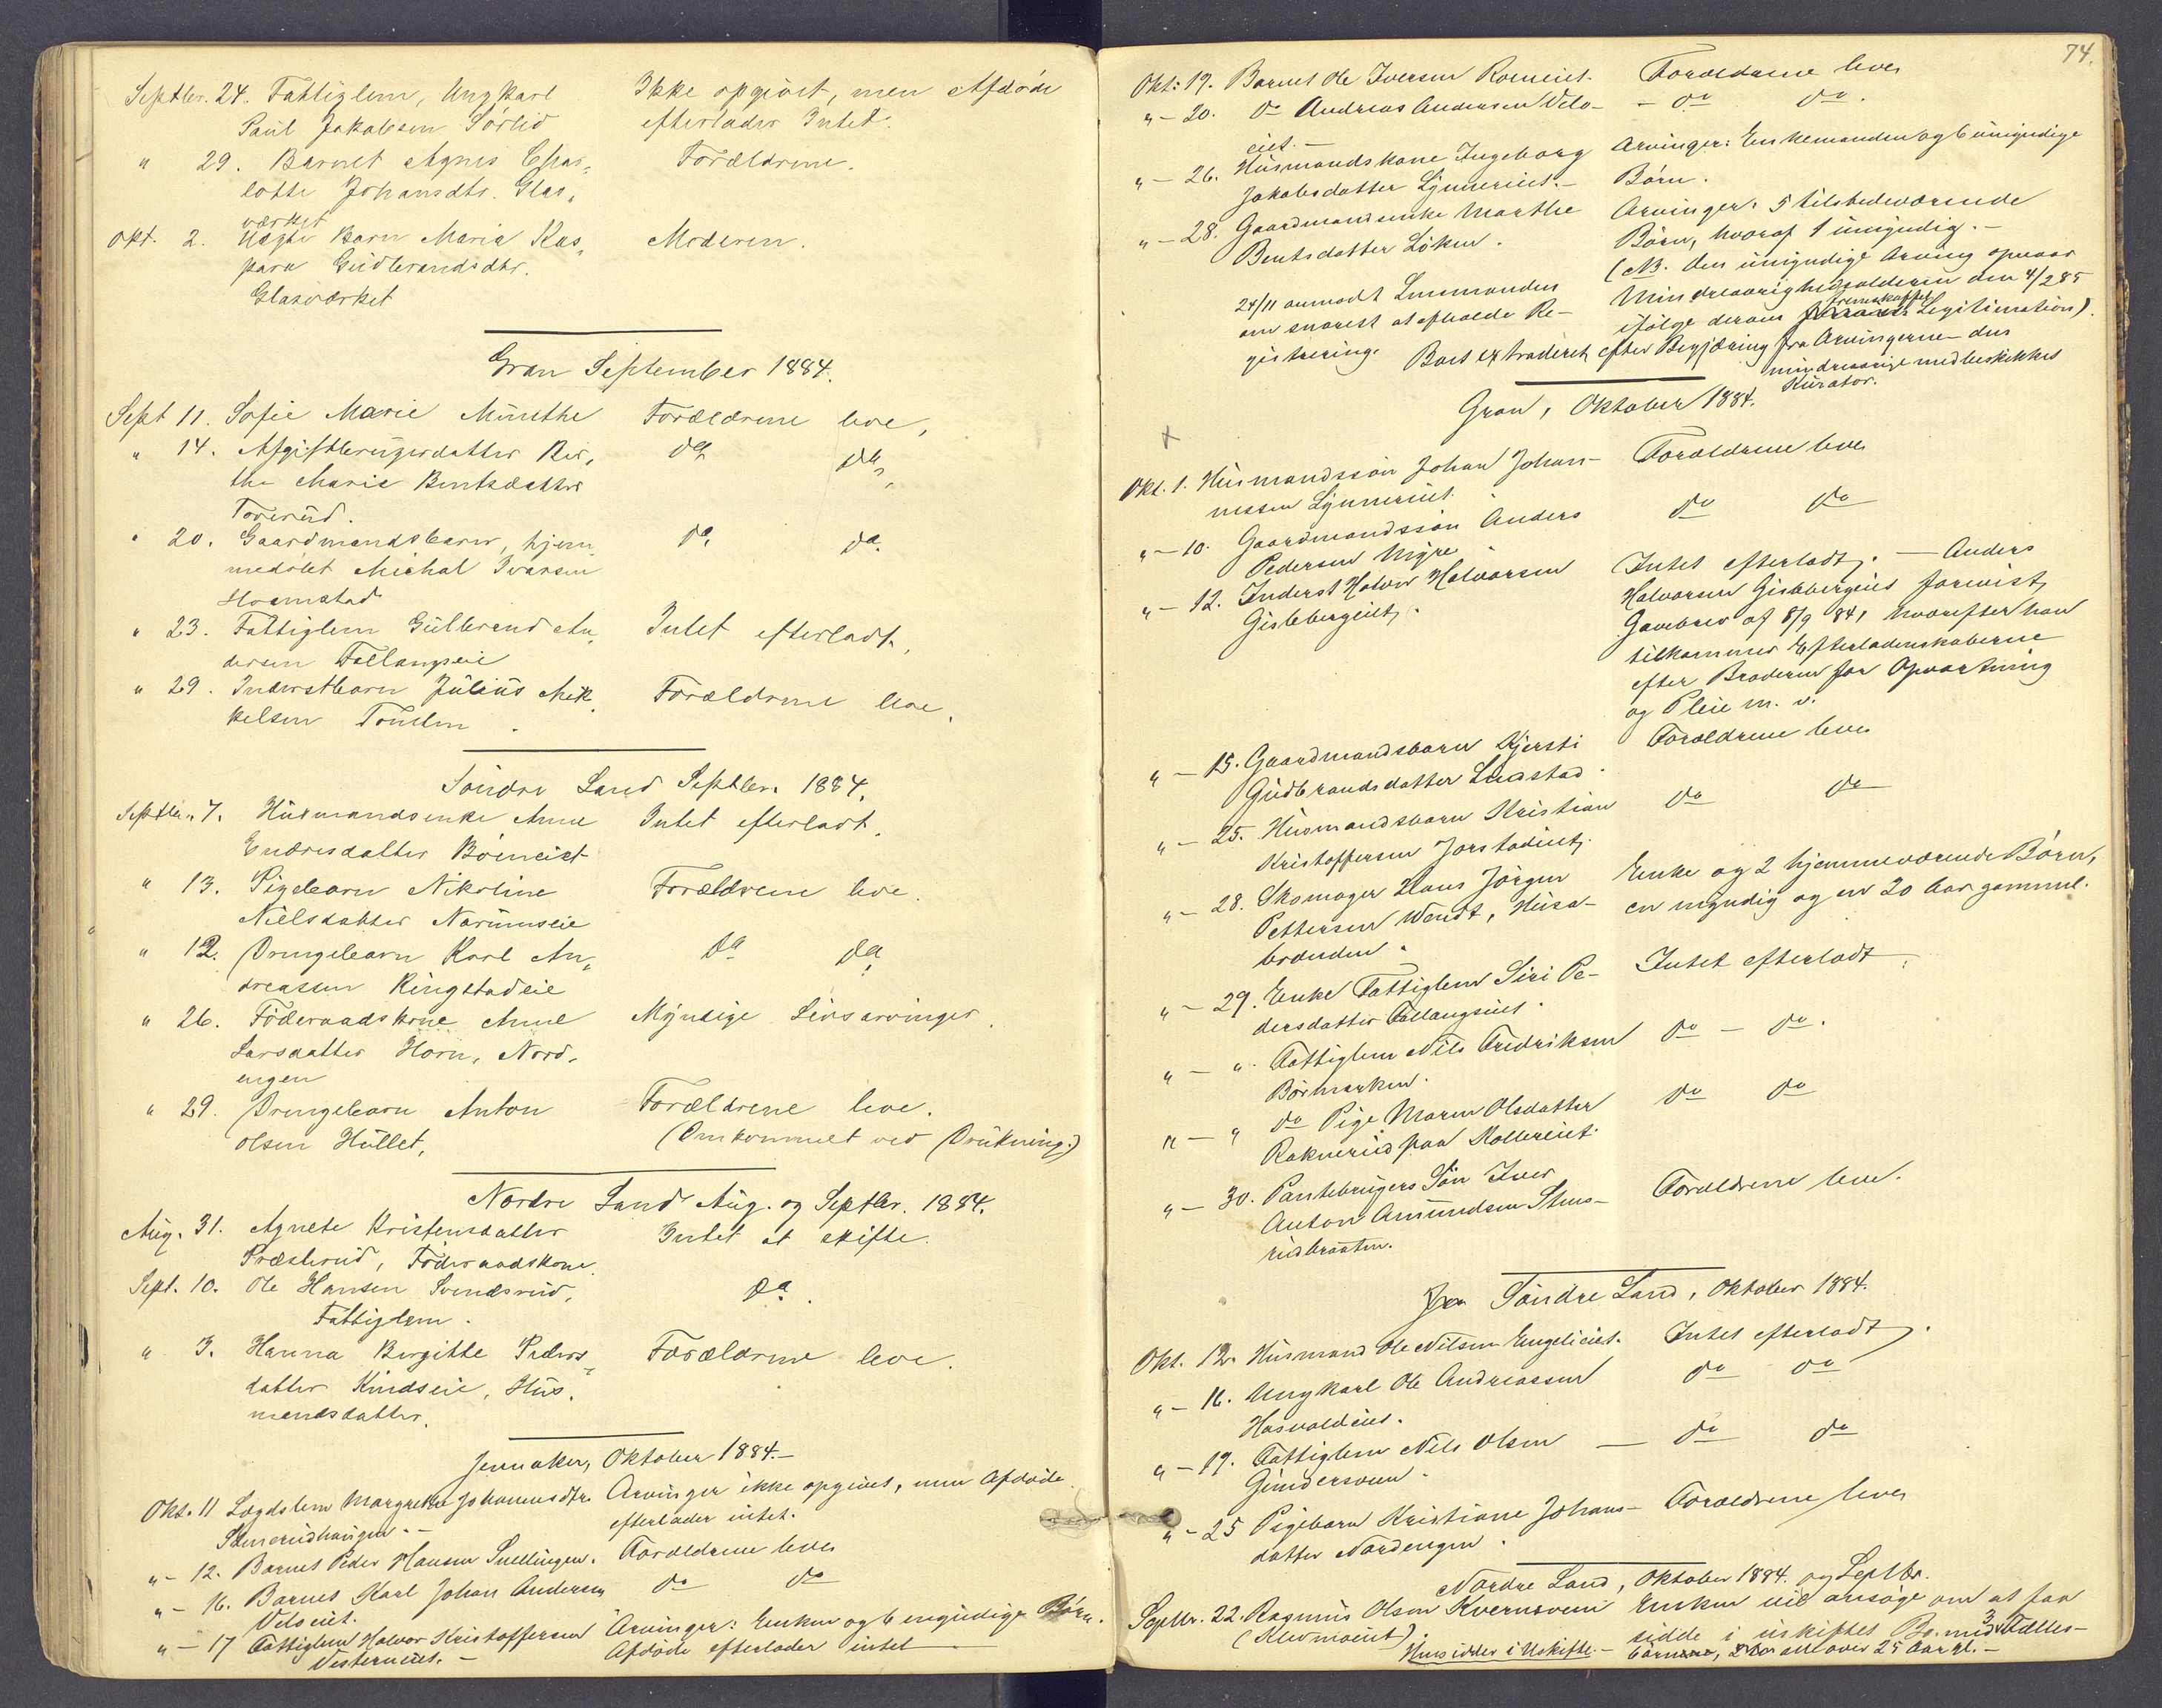 Septbr. 24. Fattiglem, Ungkarl Ikke opgivet, men Afdöde
Paul Jakobsen Sörlid efterlader Intet.
" 29. Barnet Agnes Char- Forældrene.
lotte Johansdtr. Glas-
værket
Okt. 2. Uægte Barn Maria Kas- Moderen.
para Gudbrandsdtr.
Glasværket
Gran September 1884.
Sept 11. Sofie Marie Munthe Forældrene leve,
" 14. Afgiftbrugerdatter Ber- do do
the Marie Berntsdatter
Toverud.
" 20. Gaardmandsbarn, hjem- do. do.
medöbt Michal Iversen
Hornstad
" 23. Fattiglem Gulbrand An- Intet efterladt.
dersen Fallangseie
" 29. Inderstbarn Julius Mik- Forældrene leve.
kelsen
Söndre Land Septbr. 1884.
Septbr. 7. Husmandsenke Anne Intet efterladt.
Endresdatter
" 13. Pigebarn Nikoline Forældrene leve.
Nielsdatter Narumseie
" 12. Drengebarn Karl An- do do
dreassen Ringstadeie
" 26. Föderaadskone Anne Myndige Livsarvinger.
Larsdatter Horn, Nord-
engen
" 29. Drengebarn Anton Forældrene leve.
Olsen Hullet, (Omkommet ved Drukning.)
Nordre Land Aug. og Septbr. 1884.
Aug. 31. Agnete Kristensdatter Intet at skifte.
Præsterud, Föderaadskone.
Sept. 10. Ole Hansen Svendsrud, do.
Fattiglem.
" 3. Hanna Birgitte Peders- Forældrene leve.
datter Kindseie, Hus-
mandsdatter.
Jevnaker, Oktober 1884.-
Okt. 11 Lægdslem Margrethe Johannesdtr. Arvinger ikke opgivet, men Afdöde
efterlader intet.
" - 12. Barnet Peder Hansen Snellingen. Forældrene leve
" - 16. Barnet Karl Johan Andersen do do
Veloeiet.
" - 17 Fattiglem Halvor Kristoffersen Arvinger: Enken og 6 umyndige Börn.
Vesterneiet. - Afdöde efterlader intet
74.
Okt: 19. Barnet Ole Iversen Roeneiet. Forældrene leve
" - 20. do Andreas Andersen Velo- - do do.
eiet. -
" - 26. Husmandskone Ingeborg Arvinger: Enkemanden og 6 umyndige
Jakobsdatter Lynneriet. - Börn.
" - 28. Gaardmandsenke Marthe Arvinger: 5 tilstedeværende
Berntsdatter Löken. Börn, hvoraf 1 umyndig. -
(NB. den umyndige Arving opnaar
24/11 anmodet Lensmanden Mindreaarighedsalderen den 4/2 85
om snarest at afholde Re- ifölge derom fremskaffet Legitimation).
gistrering. Boet extraderet efter Begjæring fra Arvingerne den
mindreaarige med beskikket
Kurator.
Gran, Oktober 1884.
Okt. 1. Husmandssön Johan Johan- Forældrene leve
nessen Lynneriet
" - 10. Gaardmandssön Anders do do
Pedersen Myre
" - 12. Inderst Halvor Halvorsen Intet efterladt. - Anders
Gislebergeiet. Halvorsen Gislebergeiet forevist
Gavebrev af 8/9 84, hvorefter han
tilkommer Efterladenskaberne
efter Broderen for Opvartning
og Pleie m. v.
" - 15. Gaardmandsbarn Kjersti Forældrene leve
Gudbrandsdatter
" - 25. Husmandsbarn Kristian do do
Kristoffersen Jorstadeiet.
" - 28. Skomager Hans Jörgen Enke og 2 hjemmeværende Börn,
Pettersen Wendt, Husa- en myndig og en 20 Aar gammel.
brænden.
" - 29. Enke Fattiglem Siri Pe- Intet efterladt.
dersdatter Fallangseiet.
" - ". Fattiglem Nils Fredriksen do - do.
Börmarken.
" - " do Pige Maren Olsdatter do do
Raknerud paa
" - 30. Pantebrugers Sön Iver Forældrene leve.
Anton Amundsen Stens-
rudbraaten.
Fra Söndre Land, Oktober 1884.
Okt. 12. Husmand Ole Nilsen Engelieiet. Intet efterladt.
" - 16. Ungkarl Ole Andreassen do do
Hasvoldeiet.
" - 19. Fattiglem Nils Olsen - do do
" - 25 Pigebarn Kristiane Johans- Forældrene leve
datter Nordengen.
Nordre Land, Oktober 1884. og Septbr.
Septbr. 22. Rasmus Olsen Kvernsveen Enken vil ansöge om at faa
sidde i uskiftet Bo med 3 Fælles-
Hensidder i Uskifte. - börn, alle over 25 Aar gl. -